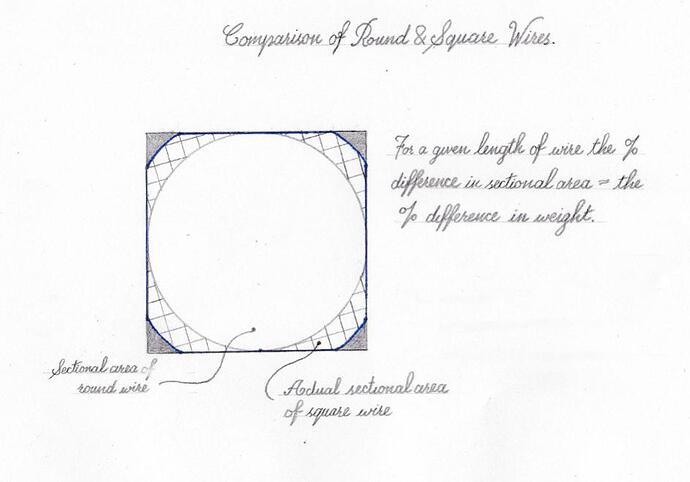 Comparison of Round & Square Wires.
For a given length of wire the %
difference in sectional area = the
% difference in weight.
Sectional area of
round wire
Actual sectional area
of square wire